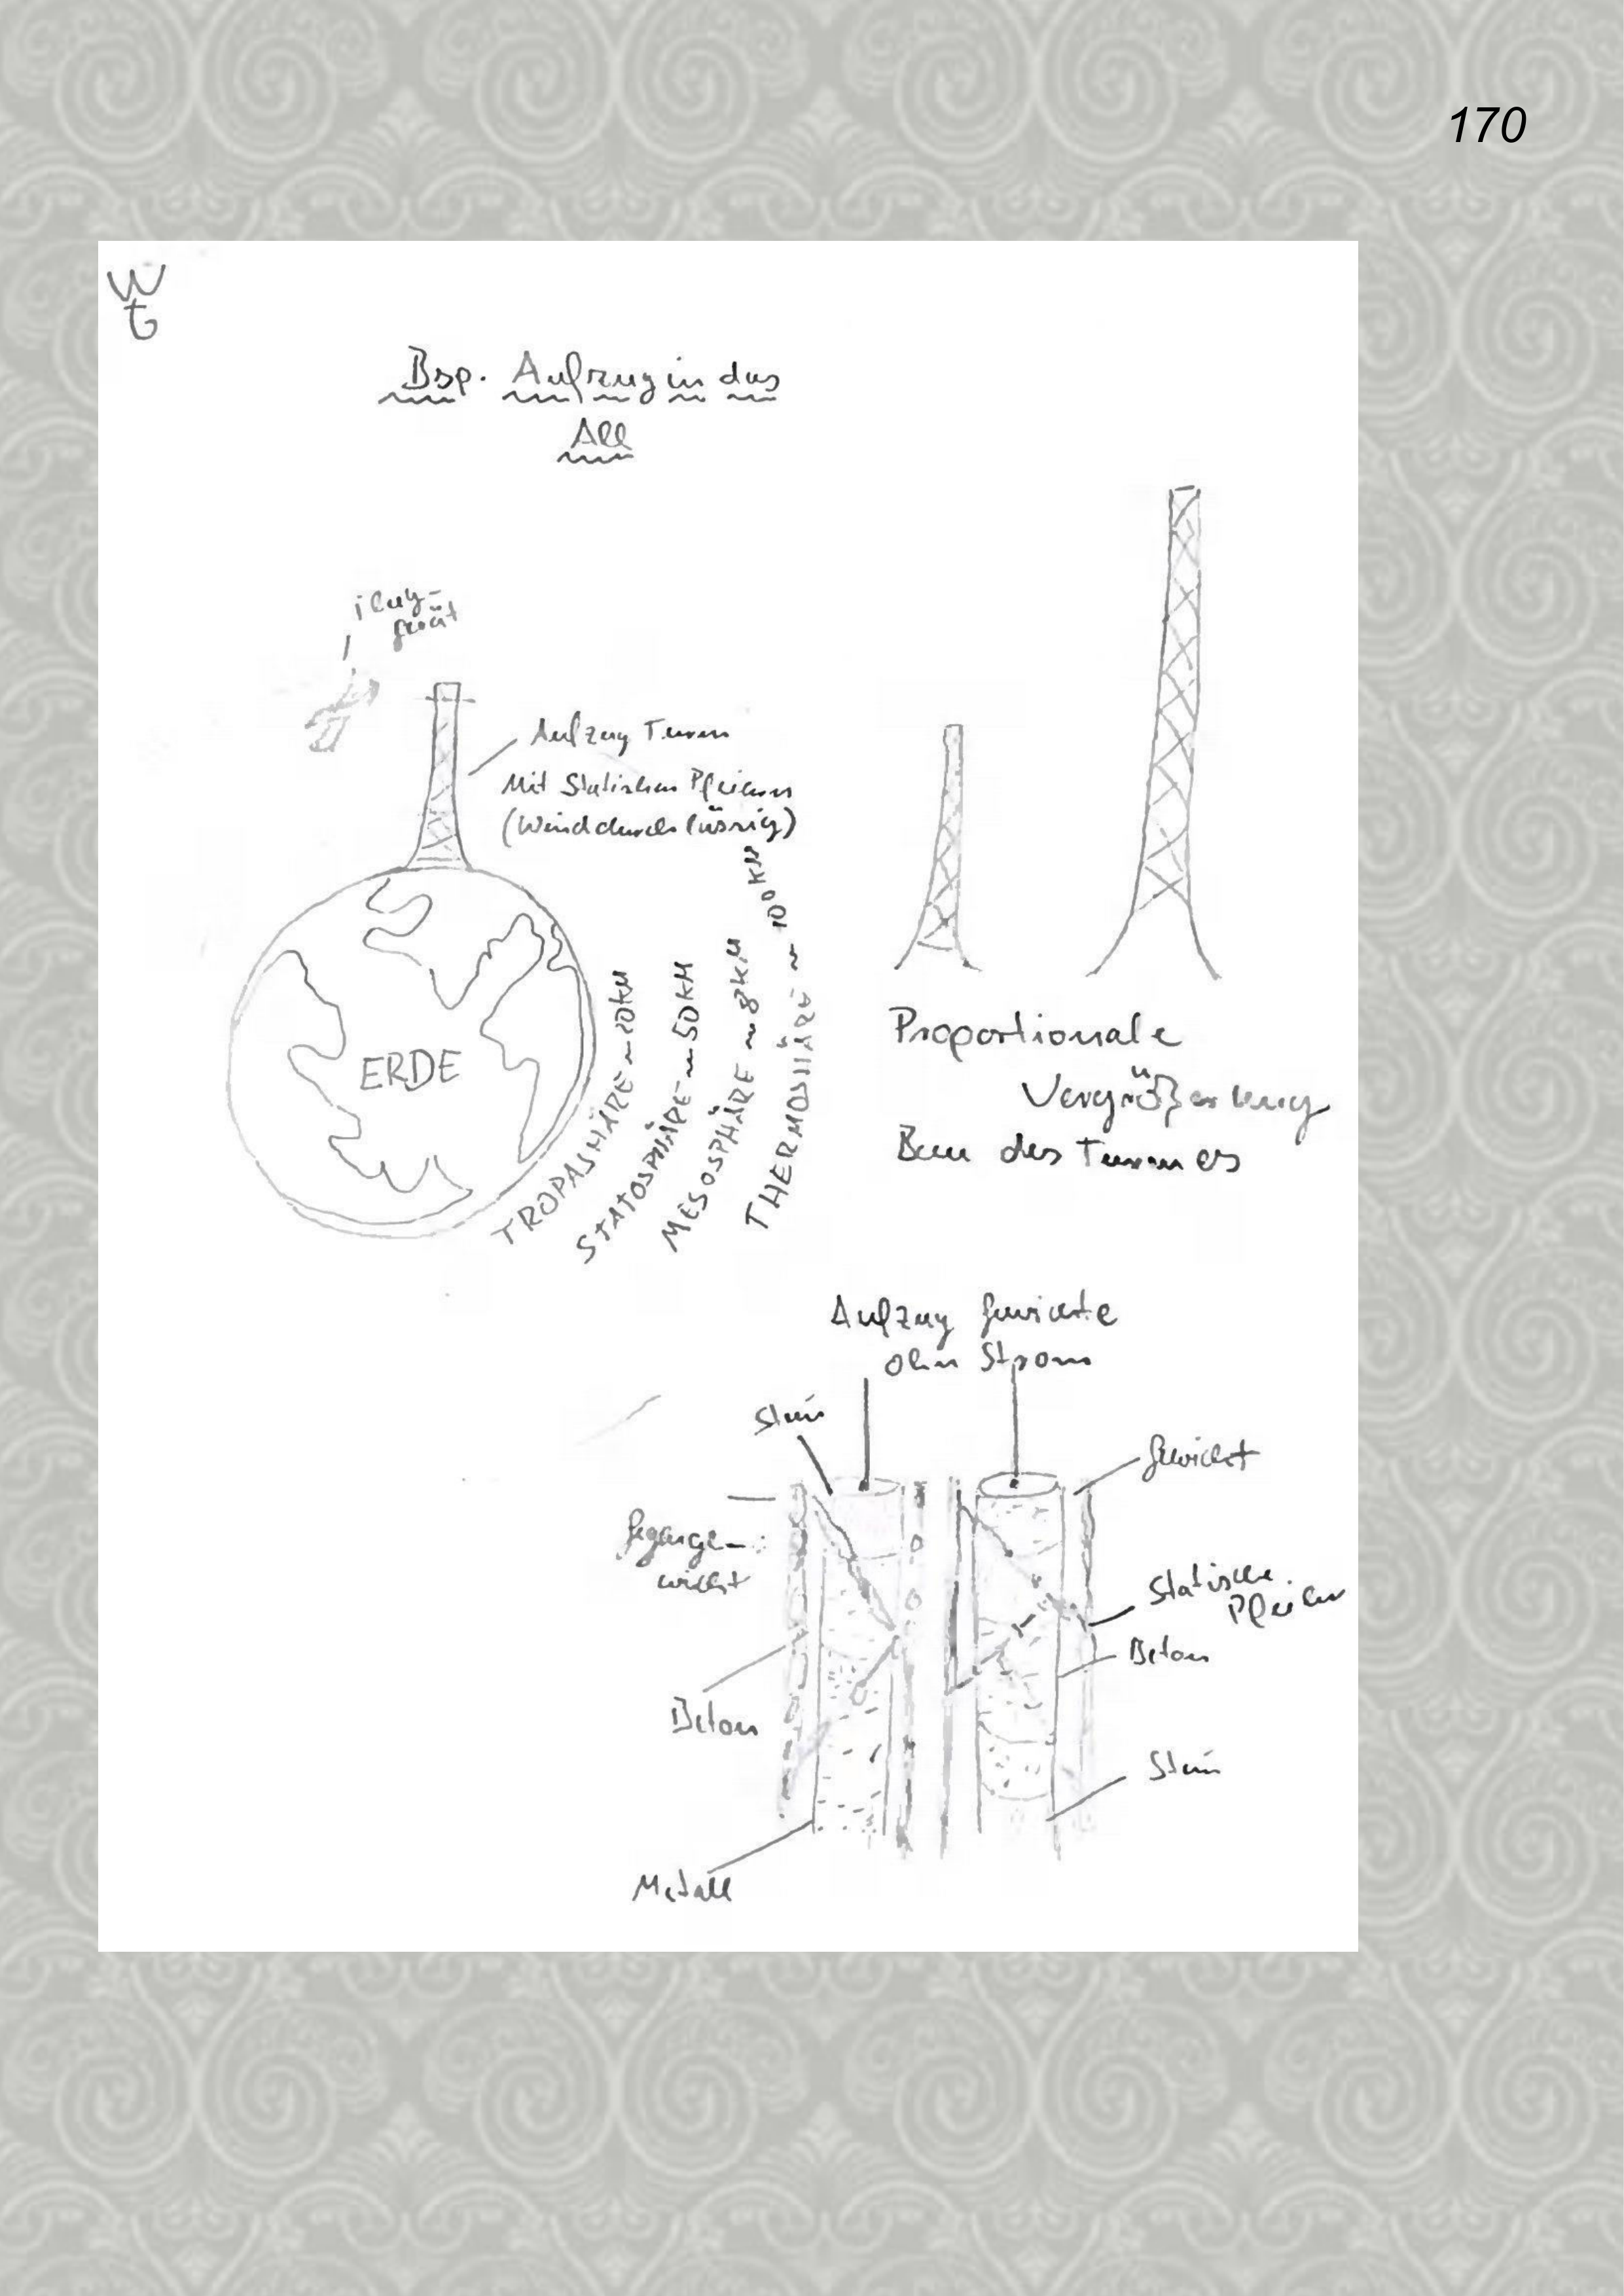 170
W
G
Bsp. Aufzug in das
All
Flug-
gerät
Aufzug Turm
Mit Statischen Pfeilern
(Winddurchlässig)
ERDE
TROPASHÄRE ~ 20KM
STATOSPHÄRE ~ 50KM
MESOSPHÄRE ~ 8KM
THERMOSHÄRE ~ 100KM
Proportionale
Vergrößerung
Bau des Turmes
Aufzug Gewichte
ohne Strom
Stein
Gewicht
Gegenge-
wicht
Statische
Pfeiler
Beton
Beton
Stein
Metall